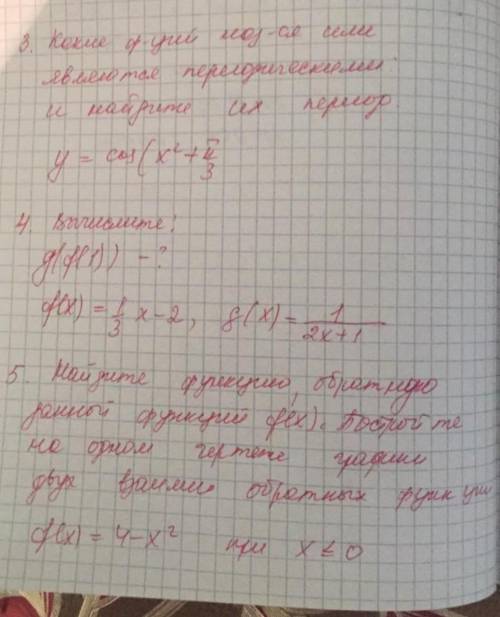 3. Какие ф-ции наз-ся или
являются периодическими
и найдите их период
y = cos(x² + π/3
4. Вычислите:
g(f(1)) - ?
f(x) = 1/3 x - 2, g(x) = 1/(2x+1)
5. Найдите функцию, обратную
данной функций f(x). Постройте
на одном чертеже графики
двух взаимно обратных функций
f(x) = 4 - x² при x ≤ 0